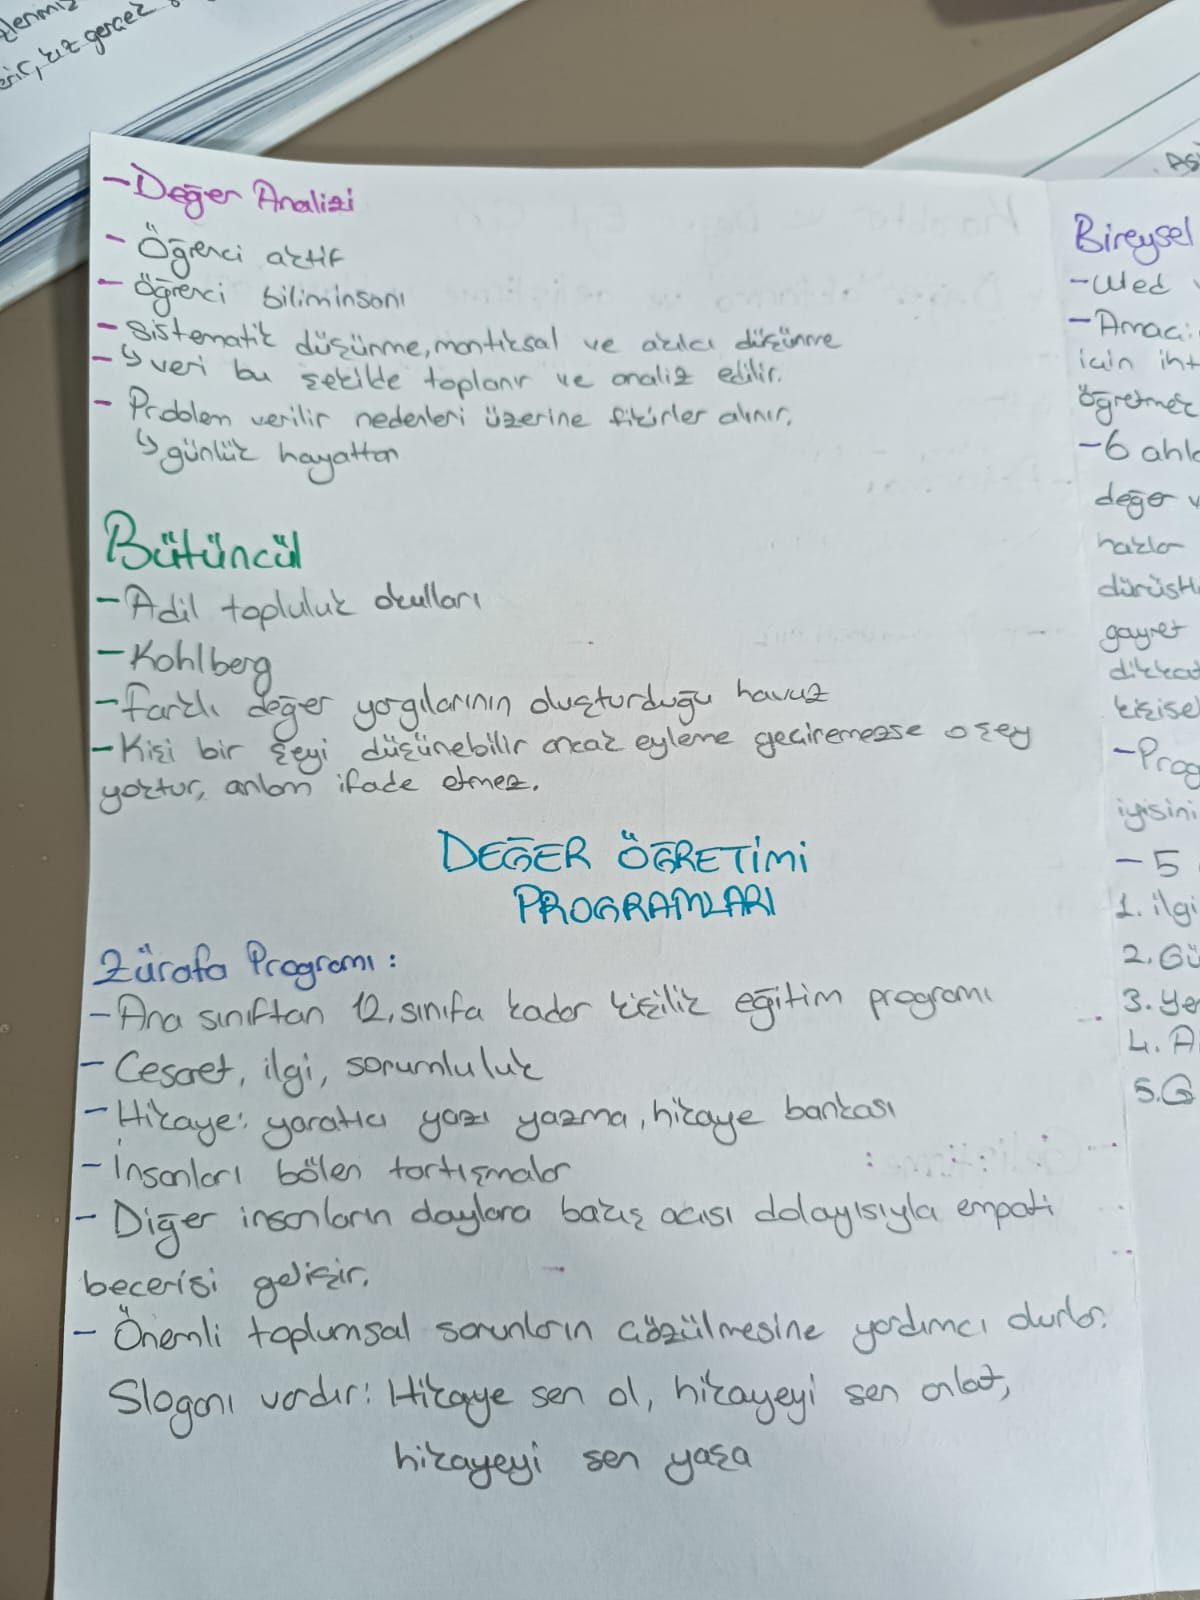 - Değer Analizi
- Öğrenci aktif
- Öğrenci biliminsanı
- Sistematik düşünme, mantıksal ve akılcı düşünme
- ↳ veri bu şekilde toplanır ve analiz edilir.
- Problem verilir nedenleri üzerine fikirler alınır.
↳ günlük hayattan
Bütüncül
- Adil topluluk okulları
- Kohlberg
- Farklı değer yargılarının oluşturduğu havuz
- Kişi bir şeyi düşünebilir ancak eyleme geçiremezse o şey
yoktur, anlam ifade etmez.
DEĞER ÖĞRETİMİ
PROGRAMLARI
Zürafa Programı:
- Ana sınıftan 12. sınıfa kadar kişilik eğitim programı
- Cesaret, ilgi, sorumluluk
- Hikaye: yaratıcı yazı yazma, hikaye bankası
- İnsanları bölen tartışmalar
- Diğer insanların olaylara bakış açısı dolayısıyla empati
becerisi gelişir.
- Önemli toplumsal sorunların çözülmesine yardımcı olurlar.
Sloganı vardır: Hikaye sen ol, hikayeyi sen anlat,
hikayeyi sen yaşa
Bireysel
- Amacı:
için
- 6
değer
gayret
1. ilgi
2.
3.
4.
5.